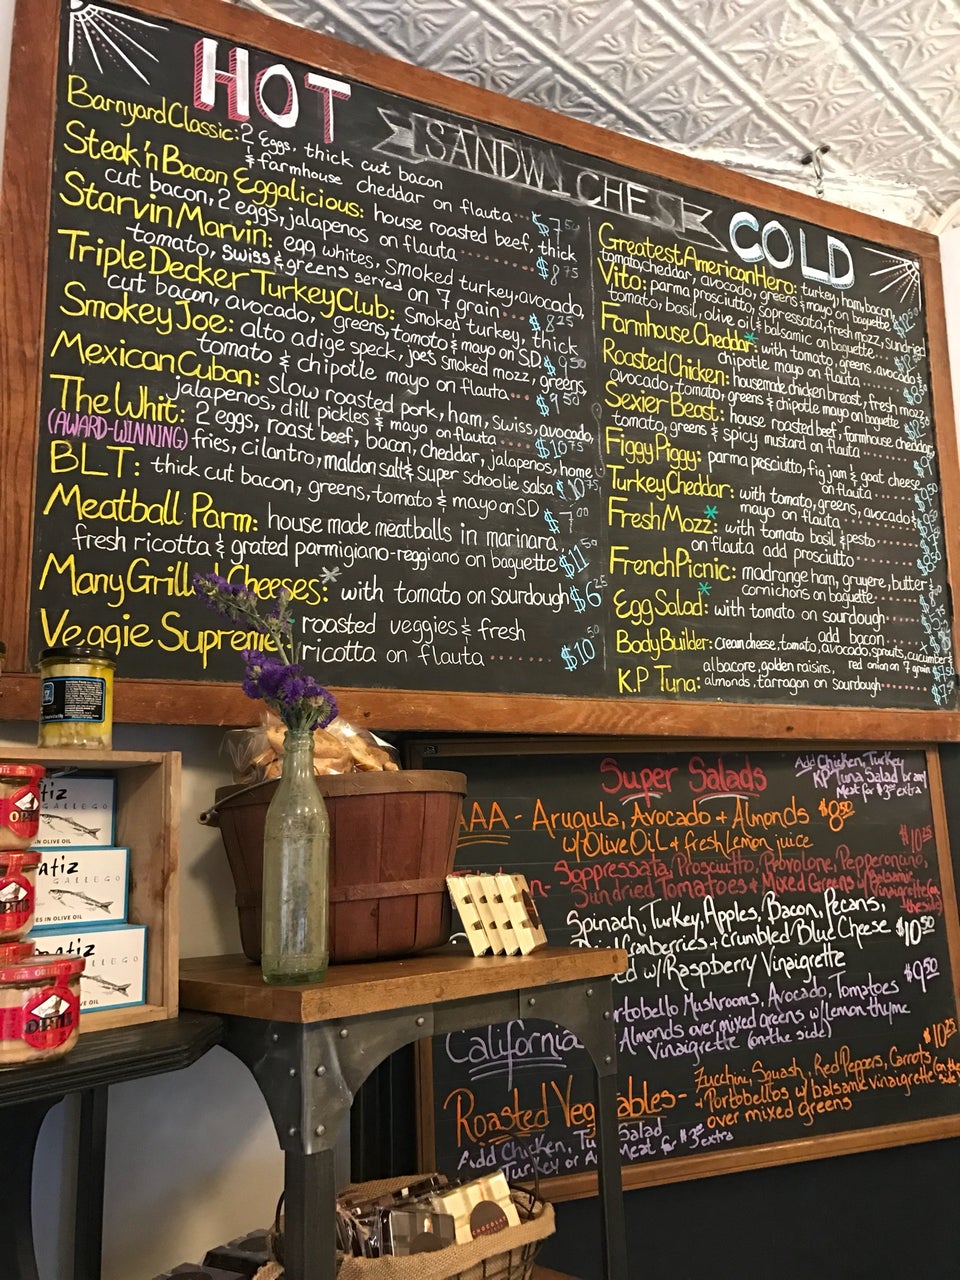 HOT
SANDWICHES
COLD
Barnyard Classic: 2 Eggs, thick cut bacon
& farmhouse cheddar on flauta... $7.50
Steak 'n Bacon Eggalicious: house roasted beef, thick
cut bacon, 2 eggs, jalapenos on flauta........ $8.75
Starvin Marvin: egg whites, smoked turkey, avocado,
tomato, swiss & greens served on 7 grain... $8.25
Triple Decker Turkey Club: Smoked turkey, thick
cut bacon, avocado, greens, tomato & mayo on SD. $9.50
Smokey Joe: alto adige speck, joe's smoked mozz, greens,
tomato & chipotle mayo on flauta........ $9.50
Mexican Cuban: slow roasted pork, ham, swiss, avocado,
jalapenos, dill pickles & mayo on flauta..... $10.75
The Whit: 2 eggs, roast beef, bacon, cheddar, jalapenos, home
(AWARD-WINNING) fries, cilantro, maldon salt & super schoolie salsa $10.75
BLT: thick cut bacon, greens, tomato & mayo on SD $7.00
Meatball Parm: house made meatballs in marinara,
fresh ricotta & grated parmigiano-reggiano on baguette $11.50
Many Grill Cheeses:* with tomato on sourdough $6.25
Veggie Supreme: roasted veggies & fresh
ricotta on flauta ....... $10.50
Greatest American Hero: turkey, ham, bacon,
tomato, cheddar, avocado, greens & mayo on baguette
Vito: parma prosciutto, sopressata, fresh mozz, sundried
tomato, basil, olive oil & balsamic on baguette...
Farmhouse Cheddar:* with tomato, greens, avocado &
chipotle mayo on flauta........
Roasted Chicken: housemade chicken breast, fresh mozz,
avocado, tomato, greens & chipotle mayo on baguette
Sexier Beast: house roasted beef, farmhouse cheddar,
tomato, greens & spicy mustard on flauta.......
Figgy Piggy: parma prosciutto, fig jam & goat cheese
on flauta.......
Turkey Cheddar: with tomato, greens, avocado &
mayo on flauta........
Fresh Mozz:* with tomato basil & pesto
on flauta add prosciutto
French Picnic: madrange ham, gruyere, butter &
cornichons on baguette......
Egg Salad:* with tomato on sourdough......
add bacon
Body Builder: cream cheese, tomato, avocado, sprouts, cucumber
red onion on 7 grain
K.P Tuna: albacore, golden raisins,
almonds, tarragon on sourdough........
Super Salads
Add Chicken, Turkey
KP Tuna Salad or any
Meat for $3 extra
AAA - Arugula, Avocado + Almonds $8.50
w/ Olive Oil + fresh lemon juice
n - Soppressata, Prosciutto, Provolone, Pepperoncino, $10.25
Sundried Tomatoes + Mixed Greens w/ Balsamic Vinaigrette (on the side)
Spinach, Turkey, Apples, Bacon, Pecans,
Dried Cranberries + Crumbled Blue Cheese $10.50
ed w/ Raspberry Vinaigrette
California
rtobello Mushrooms, Avocado, Tomatoes $9.50
Almonds over mixed greens w/ lemon thyme
Vinaigrette (on the side)
Roasted Veg ables - Zucchini, Squash, Red Peppers, Carrots $10.25
+ Portobellos w/ balsamic vinaigrette (on the side)
over mixed greens
Add Chicken, Tu Salad
Turkey or A Meat for $3 extra
ORTIZ
atiz
GALLEGO
IN OLIVE OIL
atiz
GALLEGO
ES IN OLIVE OIL
atiz
GALLEGO
OLIVE OIL
ORTIZ
CHOCOLAT